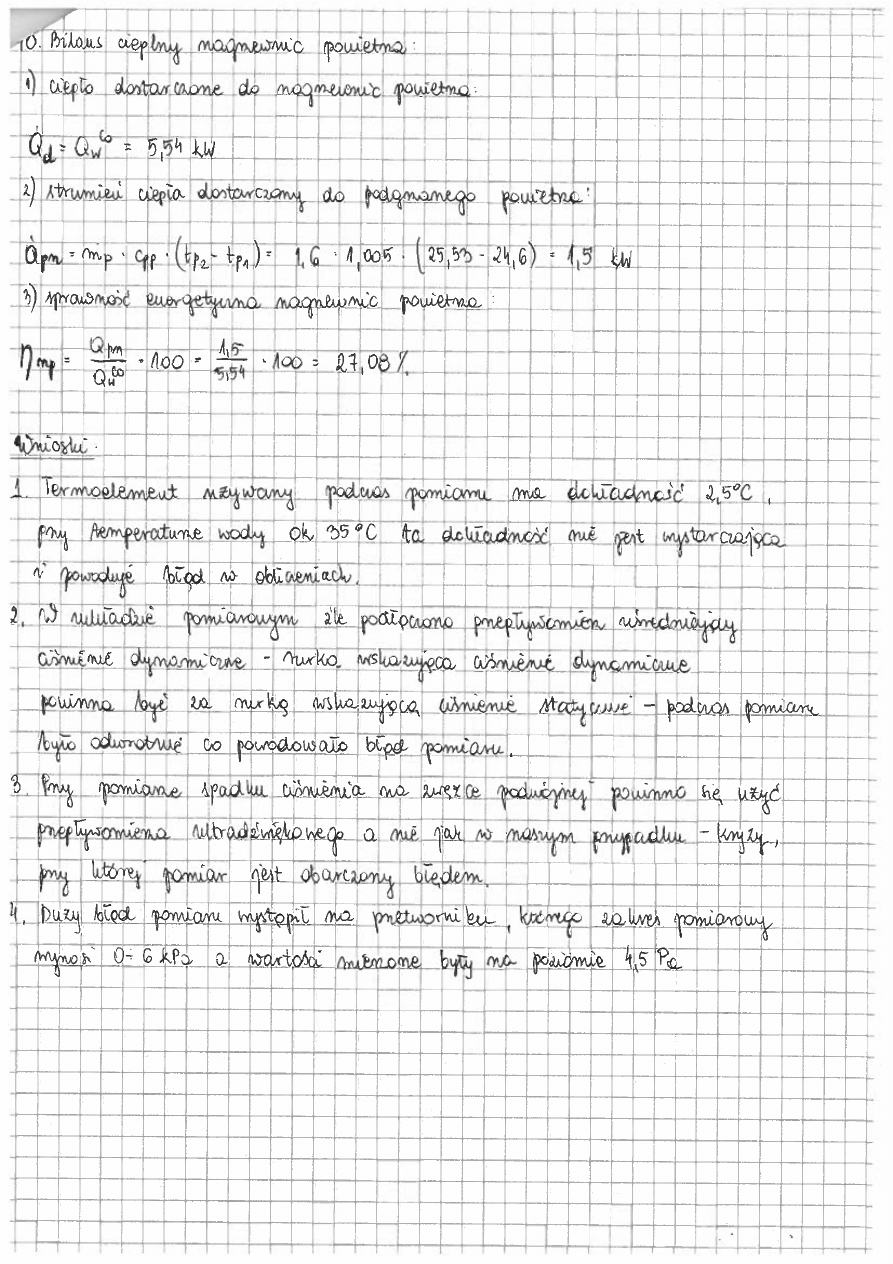 10. Bilans cieplny nagrzewnic powietrza:
1) ciepło dostarczone do nagrzewnic powietrza:
Q̇d = Qw^co = 5,54 kW
2) strumień ciepła dostarczony do podgrzanego powietrza:
Q̇pn = ṁp · cpp · (tp2 - tp1) = 1,6 · 1,005 · (25,53 - 24,6) = 1,5 kW
3) sprawność energetyczna nagrzewnic powietrza:
ηnp = Qpn / Qw^co · 100 = 1,5 / 5,54 · 100 = 27,08 %
Wnioski.
1. Termoelement używany podczas pomiaru ma dokładność 2,5°C,
przy temperaturze wody ok 35°C ta dokładność nie jest wystarczająca
i powoduje błąd w obliczeniach.
2. W układzie pomiarowym źle podłączono przepływomierz uśredniający
ciśnienie dynamiczne - rurka wskazująca ciśnienie dynamiczne
powinna być za rurką wskazującą ciśnienie statyczne - podczas pomiaru
było odwrotnie co powodowało błąd pomiaru.
3. Przy pomiarze spadku ciśnienia na zwężce podwójnej powinno się użyć
przepływomierza ultradźwiękowego a nie jak w naszym przypadku - kryzy,
przy której pomiar jest obarczony błędem.
4. Duży błąd pomiaru wystąpił na przetworniku, którego zakres pomiarowy
wynosi 0- 6 kPa a wartości mierzone były na poziomie 4,5 Pa